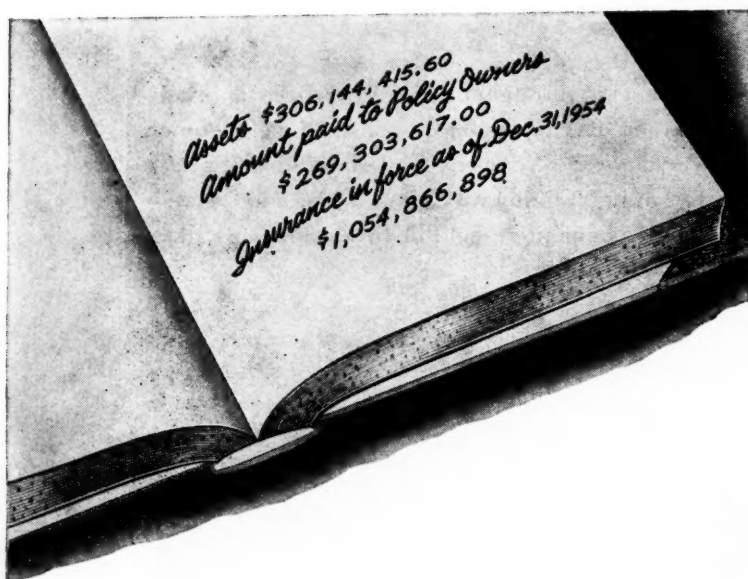 Assets $306,144,415.60
Amount paid to Policy Owners
$269,303,617.00
Insurance in force as of Dec.31,1954
$1,054,866,898